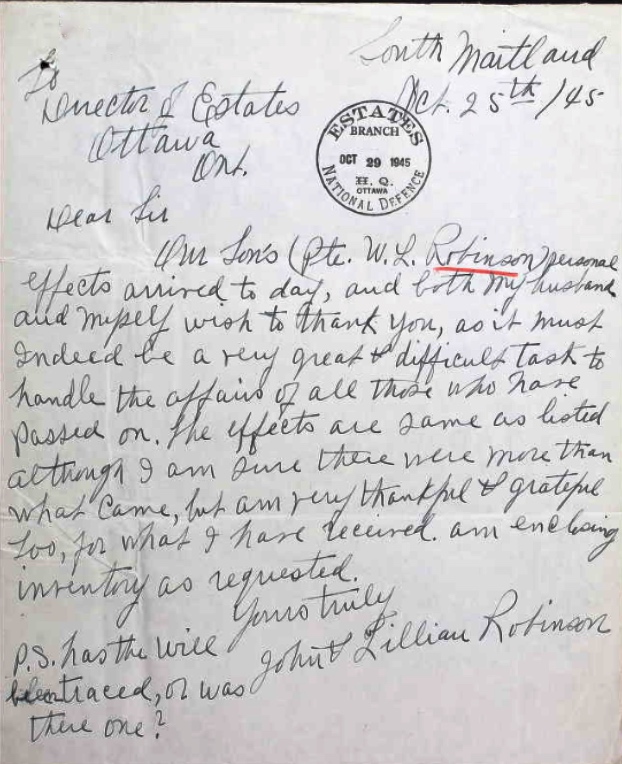 South Maitland
Oct. 25th /45
To
Director of Estates
Ottawa
Ont.
ESTATES
BRANCH
OCT 29 1945
H. Q.
OTTAWA
NATIONAL DEFENCE
Dear Sir
Our Son's (Pte. W. L. Robinson) personal
effects arrived to day, and both my husband
and myself wish to thank you, as it must
Indeed be a very great & difficult task to
handle the affairs of all those who have
passed on. The effects are same as listed
although I am sure there were more than
what came, but am very thankful & grateful
too, for what I have received. am enclosing
inventory as requested.
Yours truly
John & Lillian Robinson
P.S. has the Will
been traced, or was
there one?